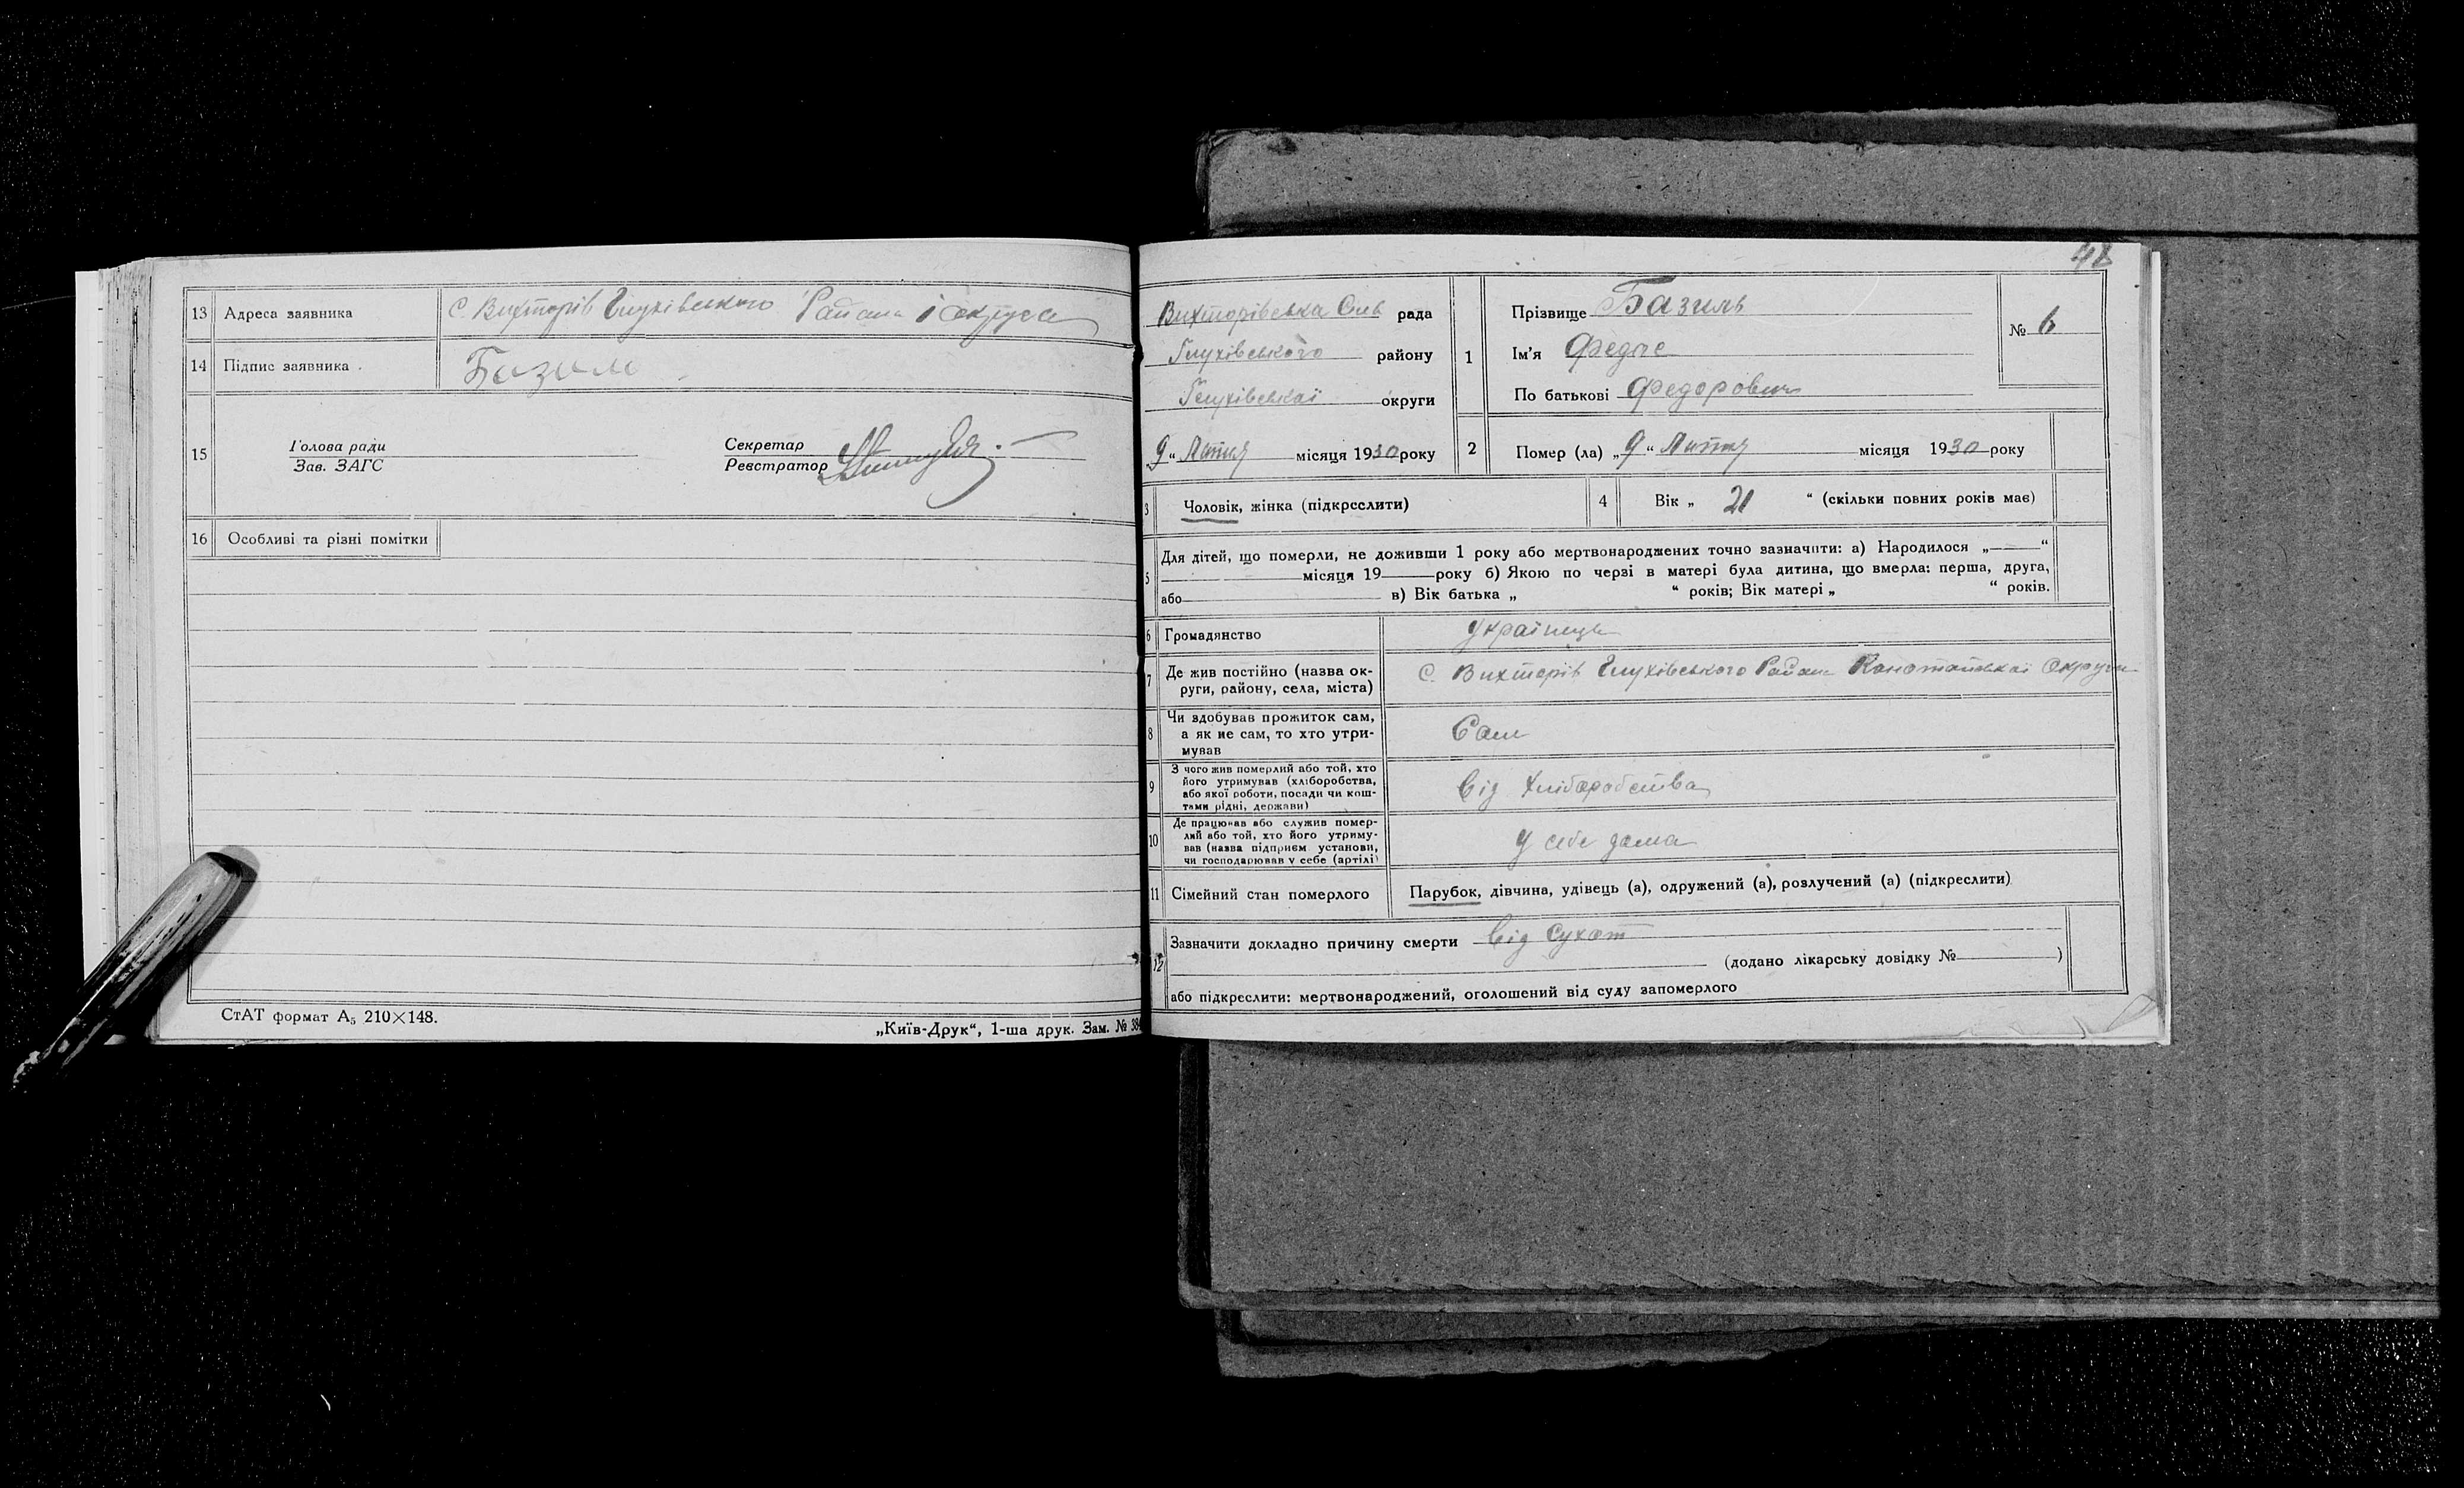 13 Адреса заявника С. Вихторів Глухівського Района і округа
14 Підпис заявника Базиль
15 Голова ради
Зав. ЗАГС
Секретар
Реєстратор
16 Особливі та різні помітки
СтАТ формат А₅ 210×148.
„Київ-Друк“, 1-ша друк. Зам. № 384
48
Вихторівська Сіль рада
Глухівського району
Глухівськаї округи
9 “ Лютня місяця 1930 року
1 Прізвище Базиль
Ім’я Федос
По батькові Федорович
№ 6
2 Помер (ла) „ 9 “ Лютня місяця 1930 року
3 Чоловік, жінка (підкреслити)
4 Вік „ 21 “ (скільки повних років має)
5 Для дітей, що померли, не доживши 1 року або мертвонароджених точно зазначити: а) Народилося „ “
місяця 19 року б) Якою по черзі в матері була дитина, що вмерла: перша, друга,
або в) Вік батька „ “ років; Вік матері „ “ років.
6 Громадянство Українець
7 Де жив постійно (назва ок-
руги, району, села, міста) С. Вихторів Глухівського Района Канотопськаї Округи
8 Чи здобував прожиток сам,
а як не сам, то хто утри-
мував Сам
9 З чого жив померлий або той, хто
його утримував (хліборобства,
або якої роботи, посади чи кош-
тами рідні, держави) від Хліборобства
10 Де працював або служив помер-
лий або той, хто його утриму-
вав (назва підприєм установи,
чи господарював у себе (артілі) У себе дома
11 Сімейний стан померлого Парубок, дівчина, удівець (а), одружений (а), розлучений (а) (підкреслити)
12 Зазначити докладно причину смерти від Сухот
(додано лікарську довідку № )
або підкреслити: мертвонароджений, оголошений від суду запомерлого